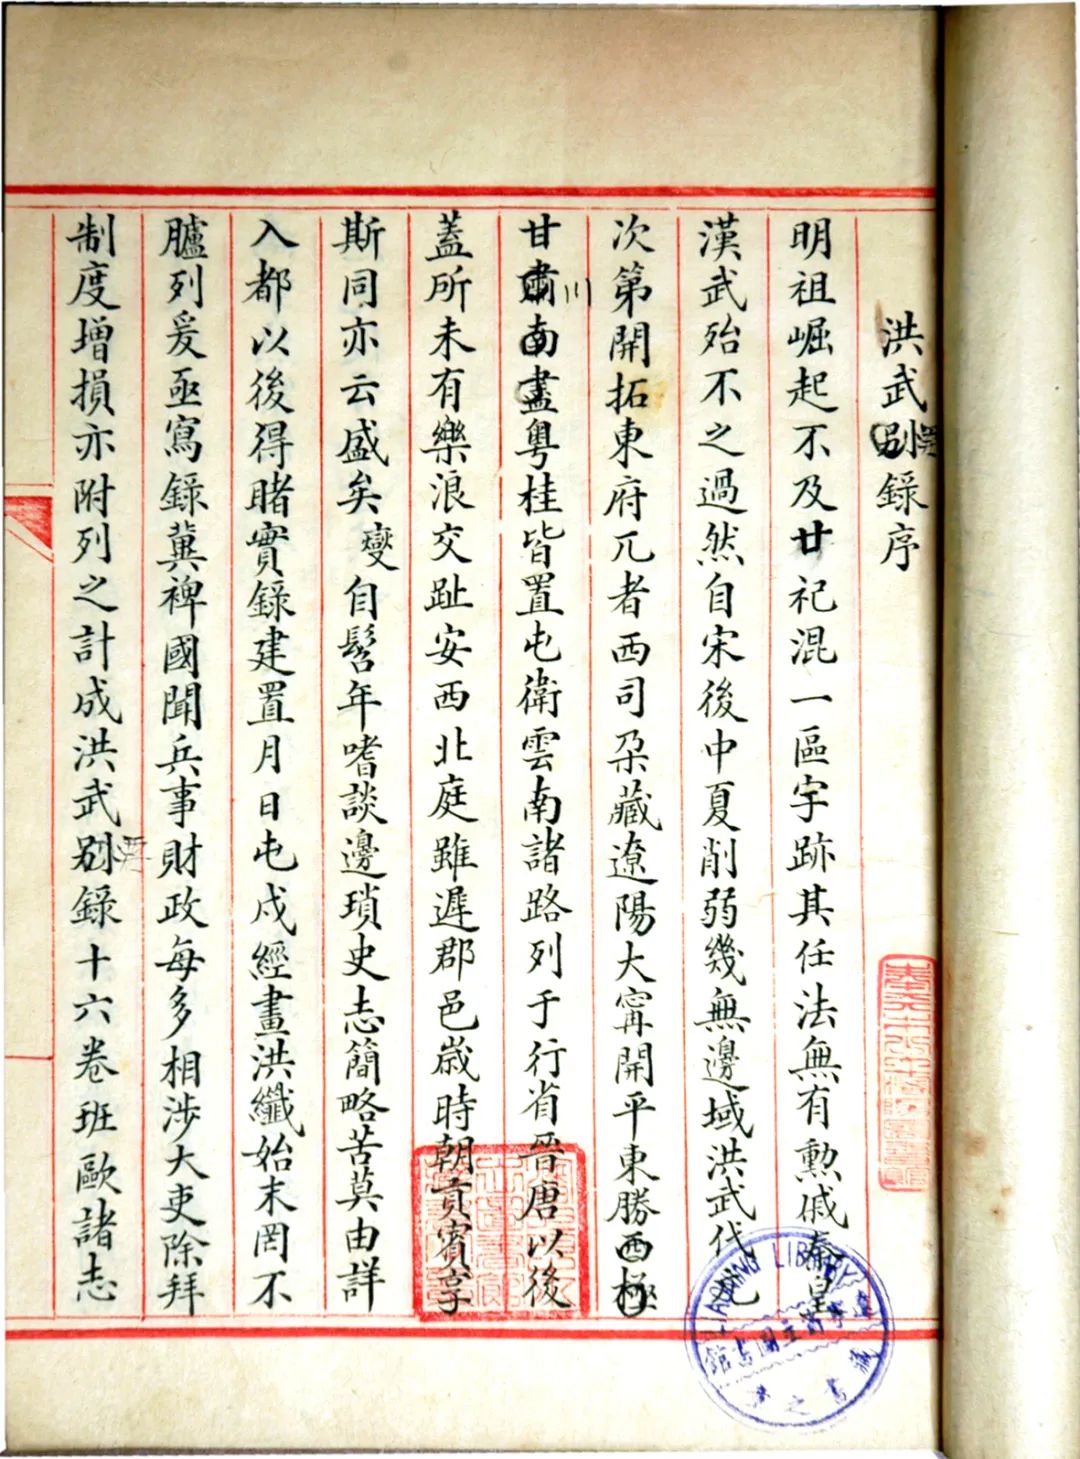 洪武別錄序
明祖崛起不及廿祀混一區宇跡其任法無有勲戚秦皇
漢武殆不之過然自宋後中夏削弱幾無邊域洪武代元
次第開拓東府兀者西司朶藏遼陽大寧開平東勝西極
甘肅川南盡粵桂皆置屯衛雲南諸路列于行省晉唐以後
蓋所未有樂浪交趾安西北庭雖遲郡邑歲時朝貢賓享
斯同亦云盛矣燮自髫年嗜談邊瑣史志簡略苦莫由詳
入都以後得睹實錄建置月日屯戍經畫洪纖始末罔不
臚列爰亟寫錄冀裨國聞兵事財政每多相涉大吏除拜
制度增損亦附列之計成洪武別錄十六卷班歐諸志
LIAONING LIBRARY
遼寧省立圖書館
藏書之